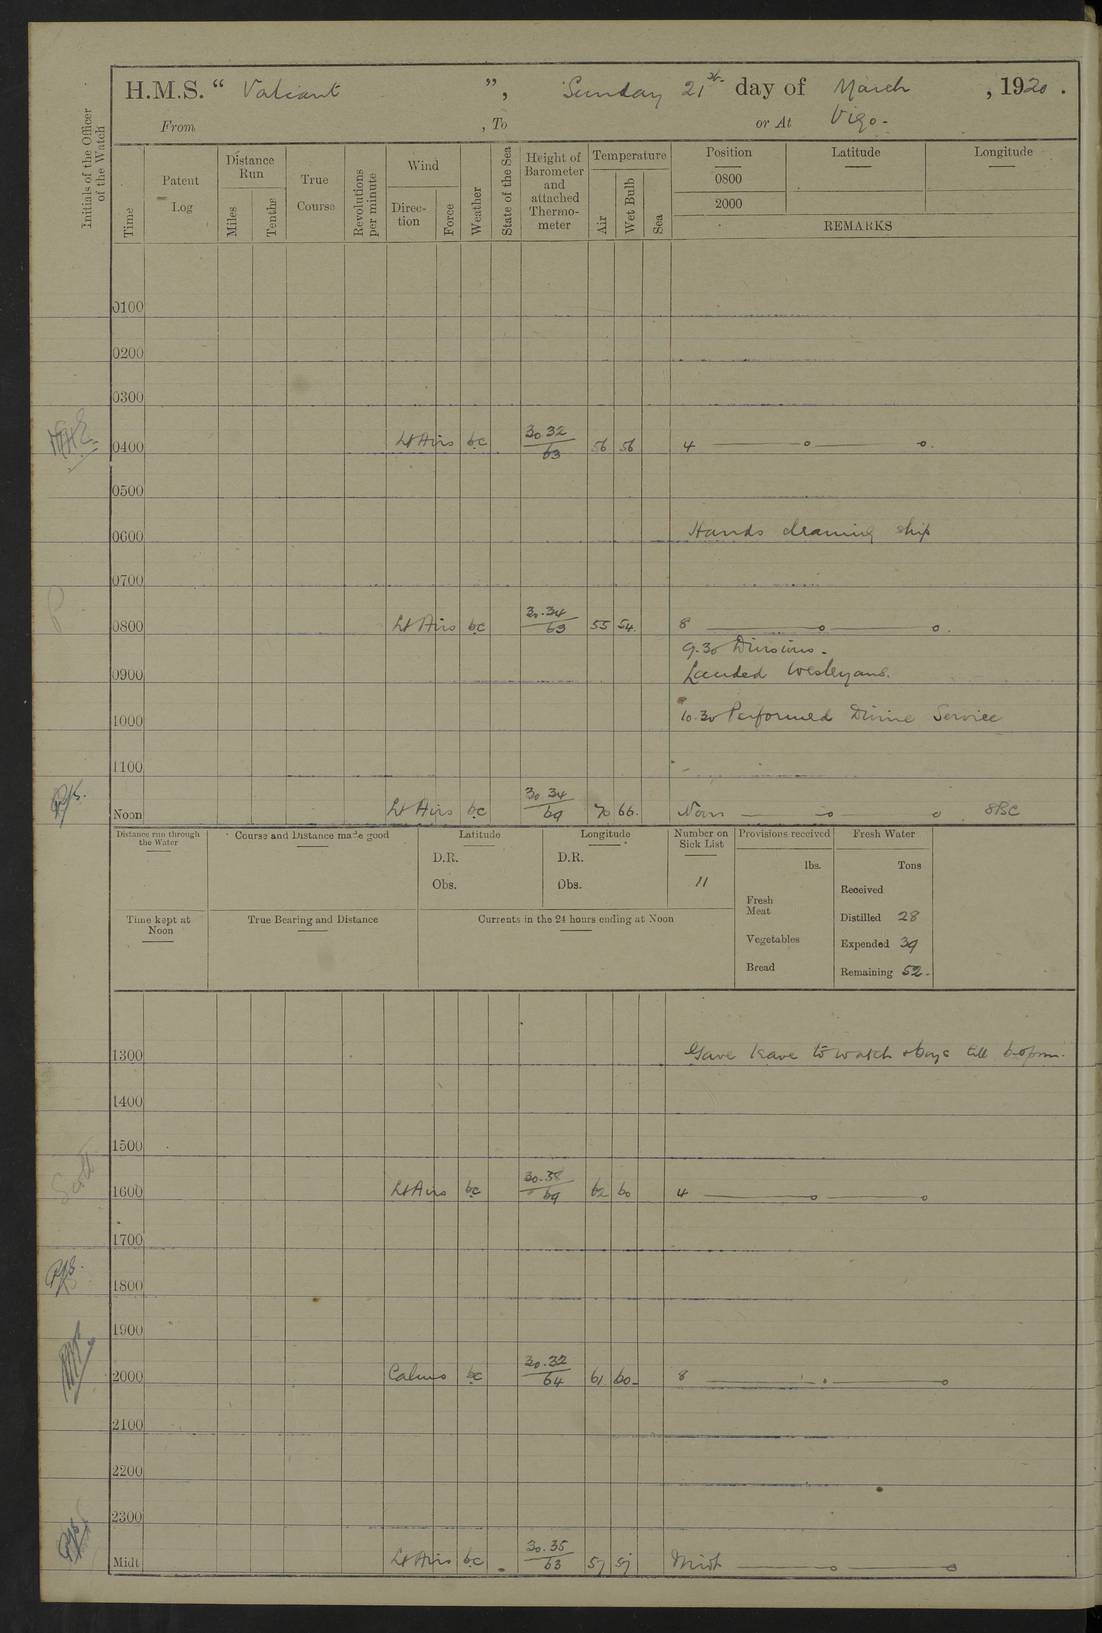 H.M.S. “ Valiant ”, Sunday 21st day of March , 1920 .
From , To or At Vigo.
Initials of the Officer of the Watch
Time
Patent Log
Distance Run
Miles
Tenths
True Course
Revolutions per minute
Wind
Direction
Force
Weather
State of the Sea
Height of Barometer and attached Thermometer
Temperature
Air
Wet Bulb
Sea
Position
Latitude
Longitude
0800
2000
REMARKS
0100
0200
0300
0400 Lt Airs bc 30 32 / 63 56 56 4 ——o——o.
0500
0600 Hands cleaning ship
0700
0800 Lt Airs bc 30.34 / 63 55 54 8 ——o——o.
9.30 Divisions.
0900 Landed Wesleyans.
1000 10.30 Performed Divine Service
1100
Noon Lt Airs bc 30 34 / 69 70 66. Noon ——o——o
Distance run through the Water
Course and Distance made good
Latitude
D.R.
Obs.
Longitude
D.R.
Obs.
Number on Sick List
11
Provisions received
lbs.
Fresh Meat
Vegetables
Bread
Fresh Water
Tons
Received
Distilled 28
Expended 39
Remaining 52.
Time kept at Noon
True Bearing and Distance
Currents in the 24 hours ending at Noon
1300 Gave leave to watch & boys till
1400
1500
1600 Lt Airs bc 30.38 / 69 62 60 4 ——o——o
1700
1800
1900
2000 Calms bc 30.32 / 64 61 60 8 ——o——o
2100
2200
2300
Midt Lt Airs bc 30.35 / 63 57 57 Midt ——o——o
Scott